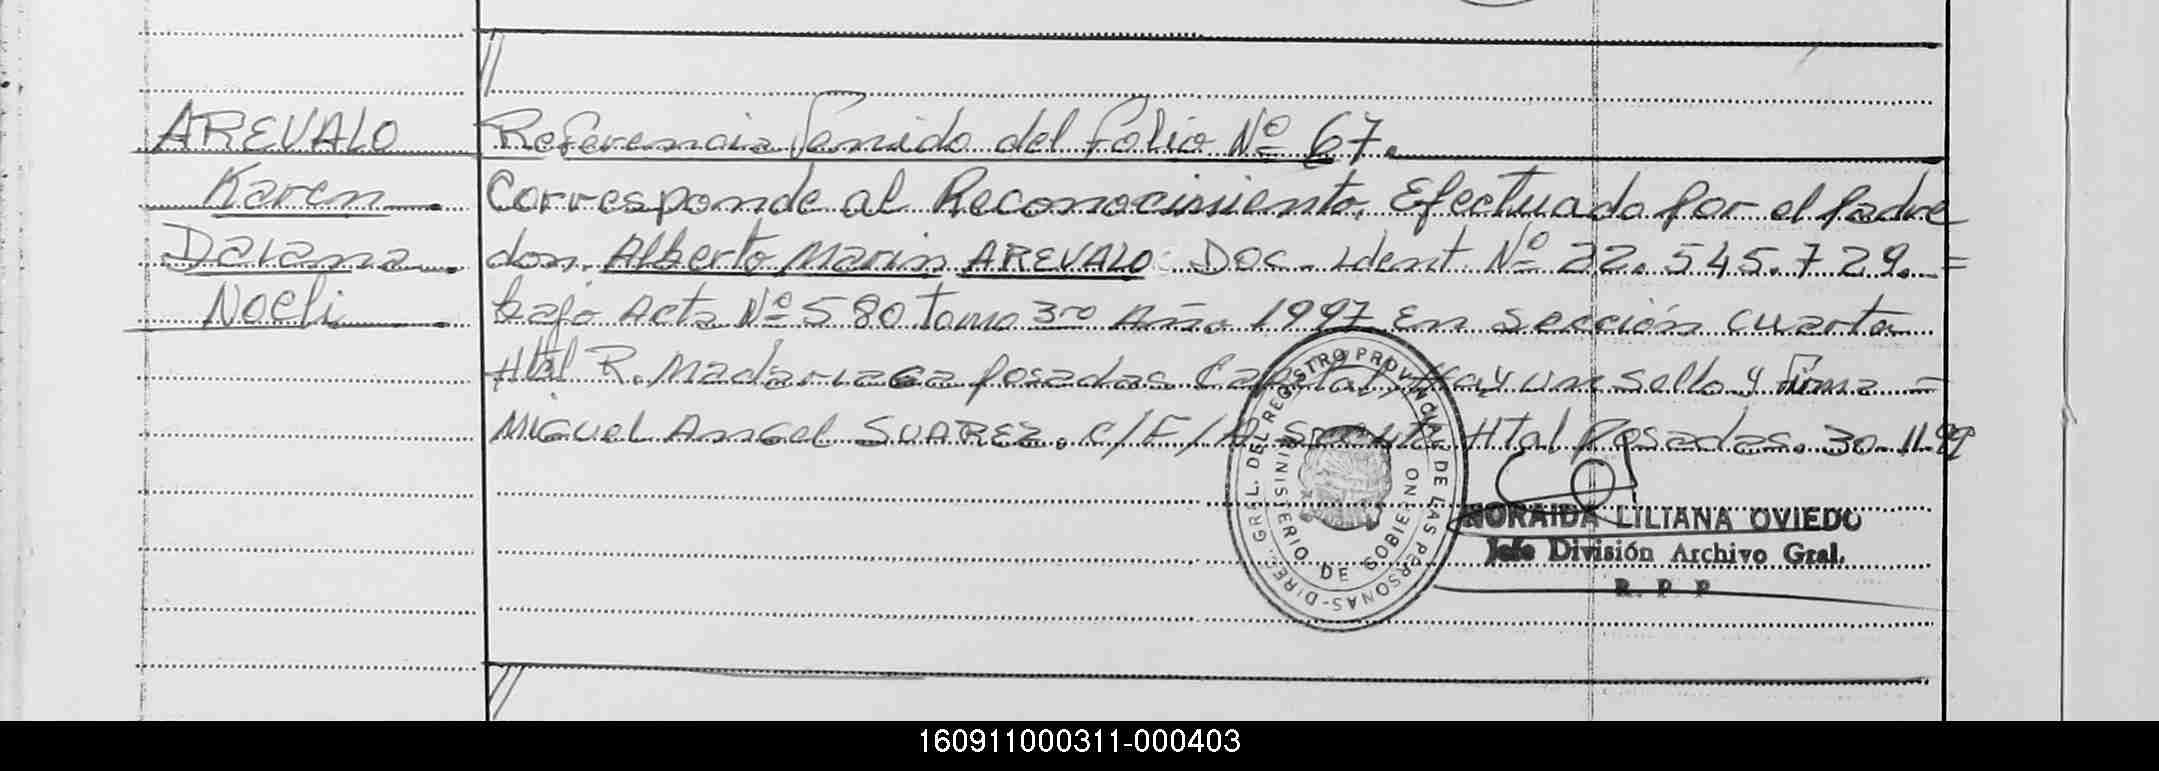 AREVALO
Karen
Daiana
Noeli
Referencia Venido del folio Nº 67.
Corresponde al Reconocimiento. Efectuado por el padre
don. Alberto Marin AREVALO. Doc. Ident. Nº 22.545.729.=
bajo Acta Nº 580 tomo 3ro Año. 1997 En sección cuarta
Htal R. Madariaga Posadas Capital, Hay un sello y firma =
MIGUEL Angel SUAREZ. c/F/D Htal Posadas. 30.11.99
DIREC. GRAL. DEL REGISTRO PROVINCIAL DE LAS PERSONAS-
MINISTERIO DE GOBIERNO
NORAIDA LILIANA OVIEDO
Jefe División Archivo Gral.
R. P. P
160911000311-000403